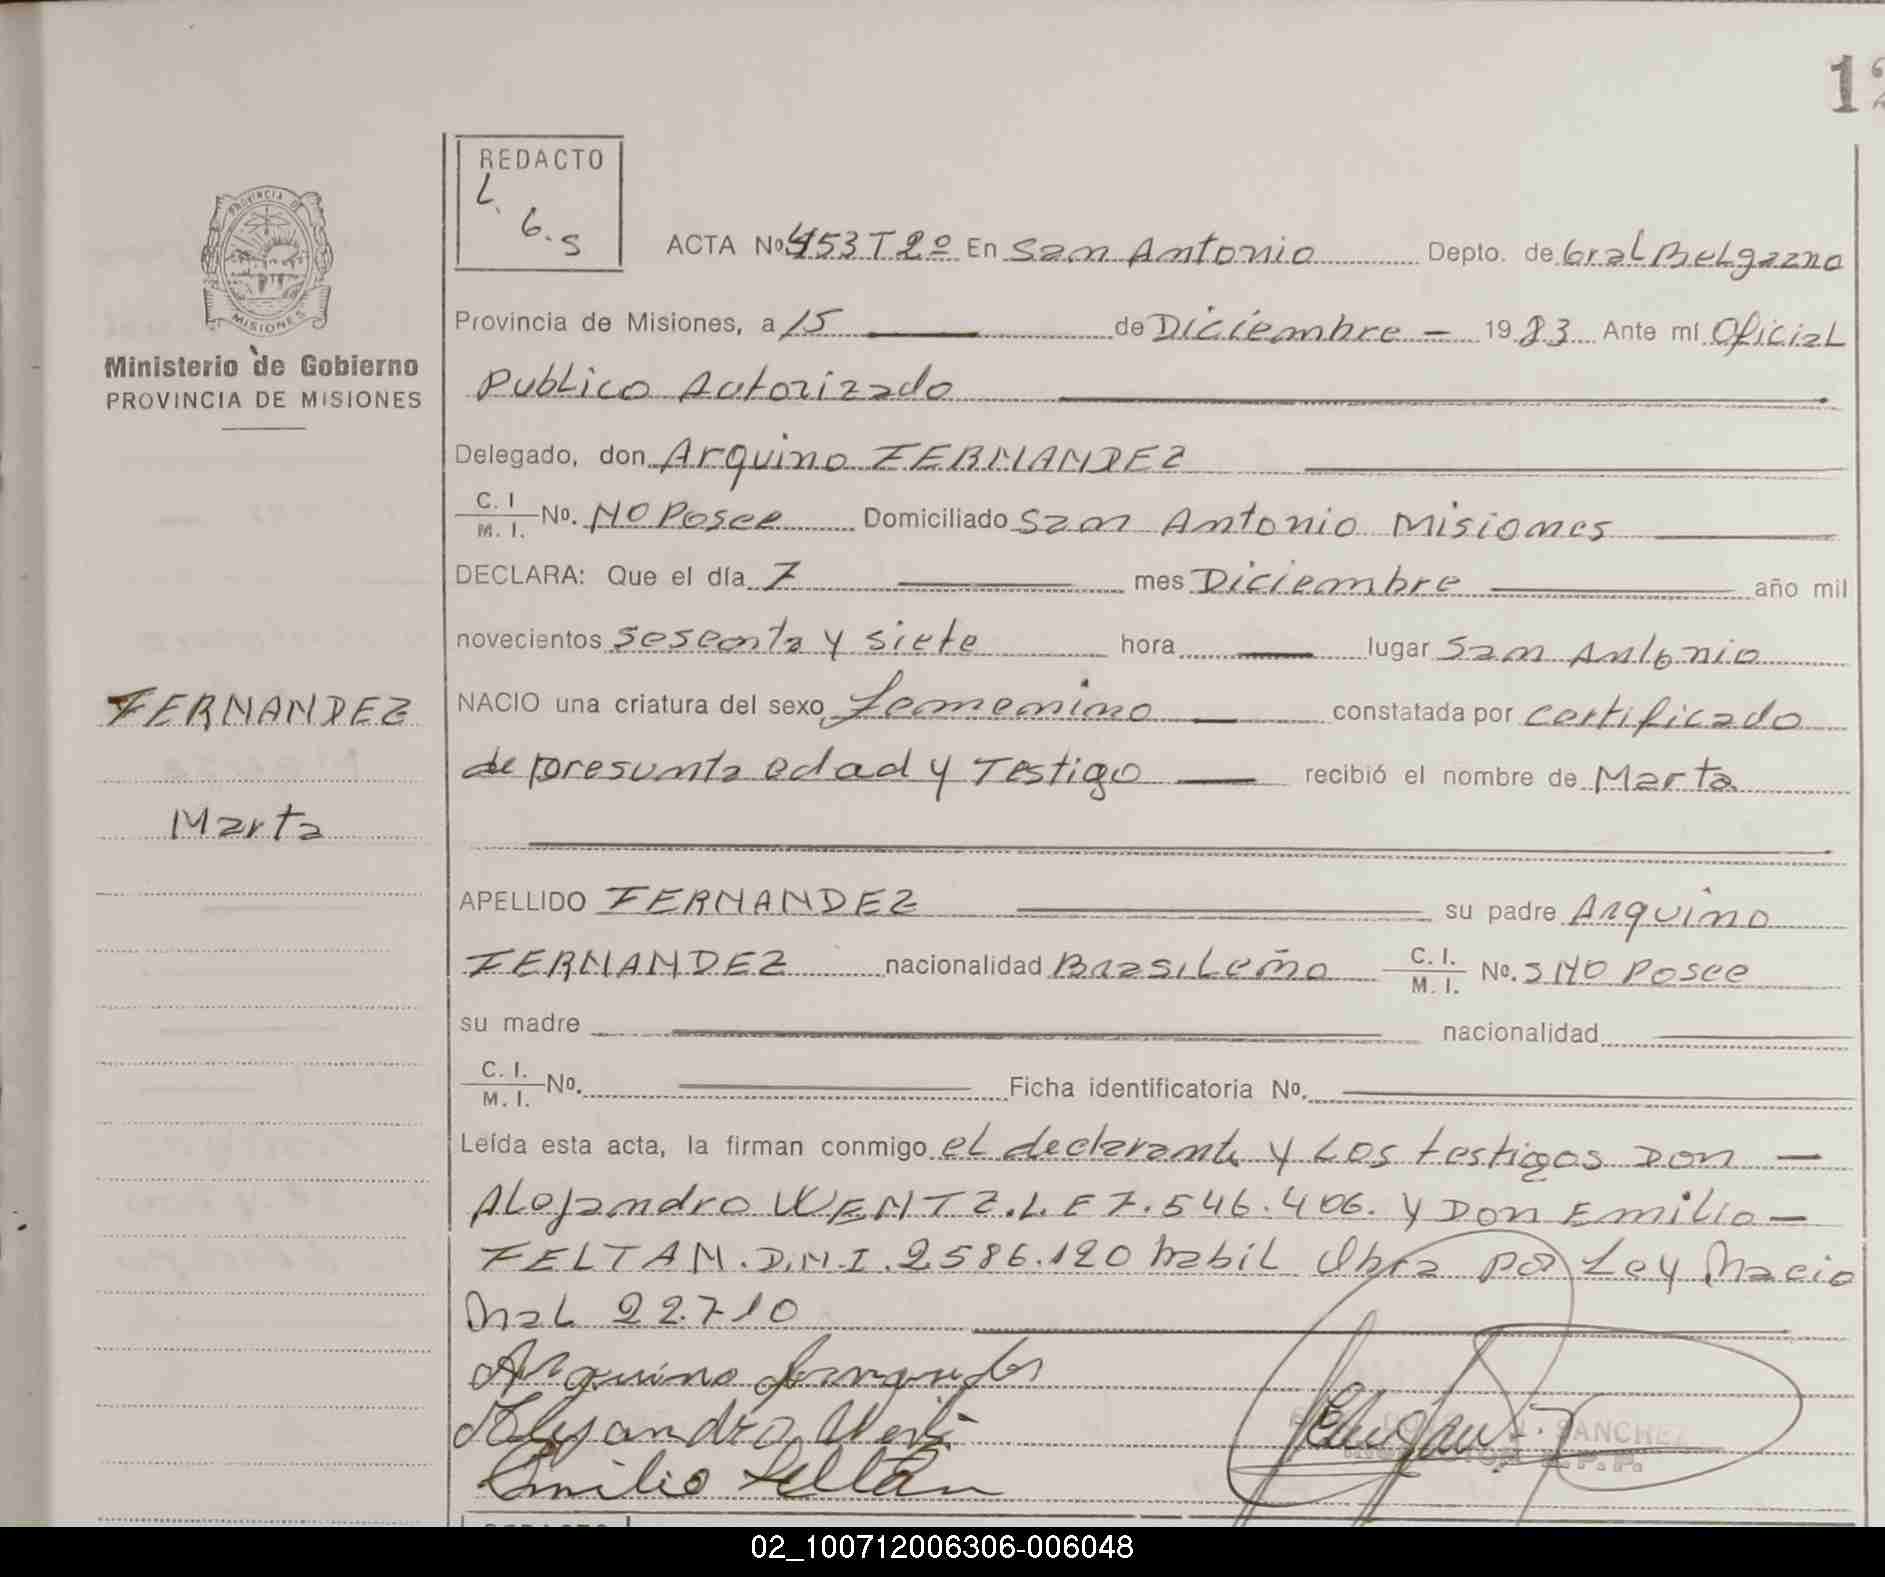 12
REDACTO
L.
G. S
PROVINCIA DE
MISIONES
Ministerio de Gobierno
PROVINCIA DE MISIONES
ACTA No. 453 T 2º En San Antonio Depto. de Gral Belgrano
Provincia de Misiones, a 15 de Diciembre - 1983 Ante mí Oficial
Publico Autorizado
Delegado, don Arquino FERNANDEZ
C. I. / M. I. No. NO Posee Domiciliado San Antonio Misiones
DECLARA: Que el día 7 mes Diciembre año mil
novecientos sesenta y siete hora lugar San Antonio
FERNANDEZ
NACIO una criatura del sexo femenino constatada por certificado
de presunta edad y Testigo recibió el nombre de Marta
Marta
APELLIDO FERNANDEZ su padre Arquino
FERNANDEZ nacionalidad Brasileño C. I. / M. I. No. NO Posee
su madre nacionalidad
C. I. / M. I. No. Ficha identificatoria No.
Leída esta acta, la firman conmigo el declarante y Los testigos Don -
Alejandro WENTZ. L. E 7.546.406. y Don Emilio -
FELTAN. D.N.I. 2586.120 habil Obra por Ley Nacio
nal 22.710
Arquino Fernandes
Alejandro
Emilio Feltan
SANCHEZ
REDACTO
02_100712006306-006048